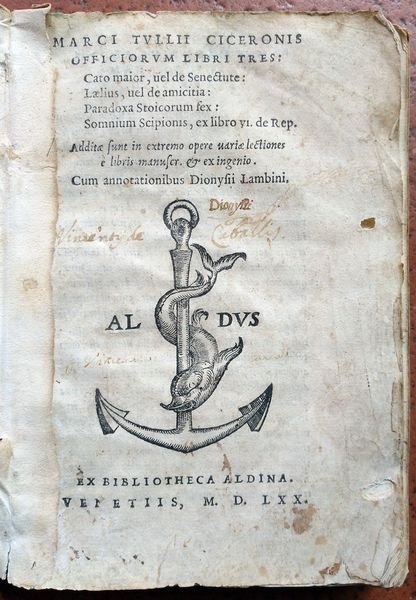 MARCI TVLLII CICERONIS
OFFICIORVM LIBRI TRES:
Cato maior, uel de Senectute:
Lælius, uel de amicitia:
Paradoxa Stoicorum sex:
Somnium Scipionis, ex libro VI. de Rep.
Additæ sunt in extremo opere uariæ lectiones
è libris manuscr. & ex ingenio.
Cum annotationibus Dionysii Lambini.
Dionysii
de Ceballis
AL DVS
EX BIBLIOTHECA ALDINA.
VENETIIS, M. D. LXX.